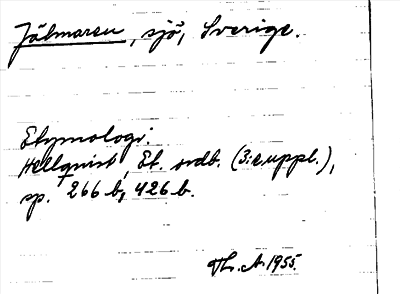 Jälmaren, sjö, Sverige.
Etymologi:
Hellquist, Et. ordb. (3:e uppl.),
sp. 266 b, 426 b.
Th. A. 1955.